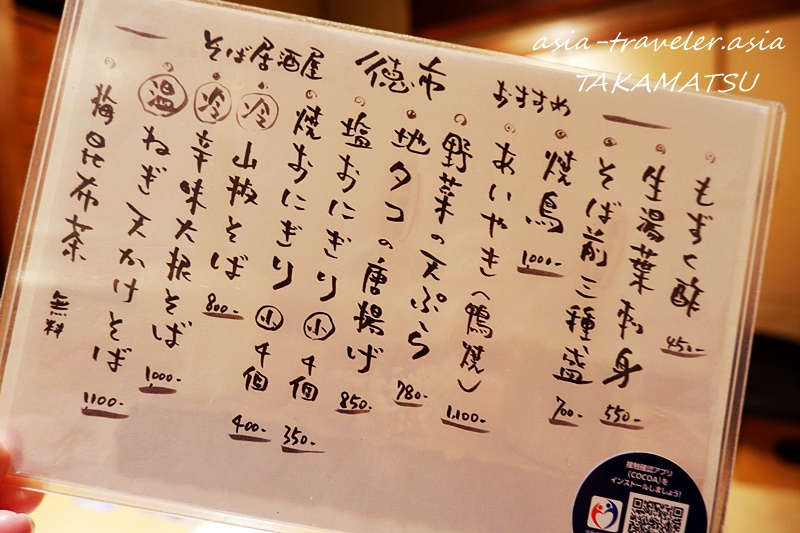 asia-traveler.asia
TAKAMATSU
おすすめ
そば居酒屋 徳布
もずく酢 450-
生湯葉刺身 550-
そば前三種盛 700-
焼鳥 1000-
あいやき(鴨焼) 1,100-
野菜の天ぷら 780-
地タコの唐揚げ 850-
塩おにぎり 小 4個 350-
焼おにぎり 小 4個 400-
冷 山板そば 800-
冷 辛味大根そば 1,000-
温 ねぎ天かけそば 1,100-
梅昆布茶 無料
接触確認アプリ
(COCOA)を
インストールしましょう!